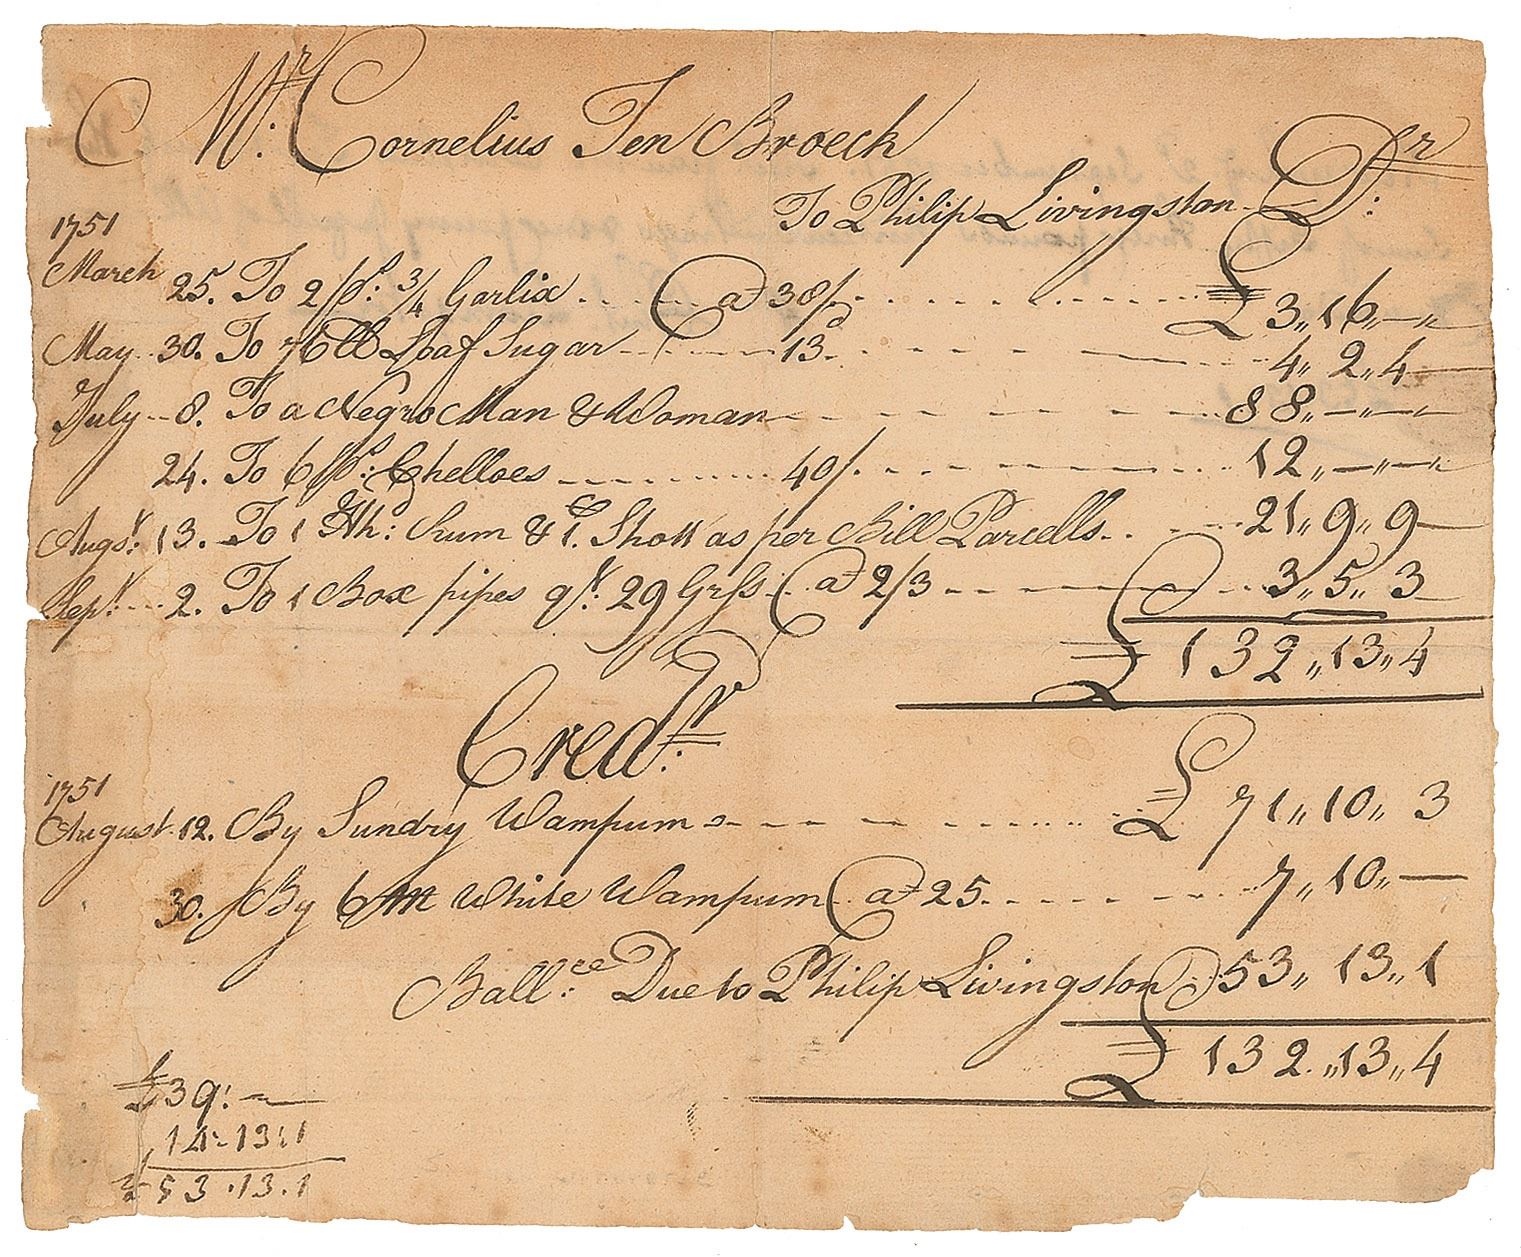 Mr: Cornelius Ten Broeck Dr:
To Philip Livingston
1751
March 25. To 2 ps: 3/4 Garlix @ 38/. £3,,16,,—,,
May 30. To 76 lb Loaf Sugar 13d 4,,2,,4
July 8. To a Negro Man & Woman 88,,—,,—,,
24. To 6 ps: Chelloes 40/. 12,,—,,—,,
Augst: 13. To 1 Hhd: Rum & 1 C. Shott as per Bill Parcells 21,,9,,9
Sepr: 2. To 1 Box pipes qt: 29 Grss @ 2/3 3,,5,,3
£132,,13,,4
Credr:
1751
August 12. By Sundry Wampum £71,,10,,3
30. By 6 M White Wampum @ 25 7,,10,,—
Ballce: Due to Philip Livingston 53,,13,,1
£132,,13,,4
£39:—
14:13:1
£53.13.1